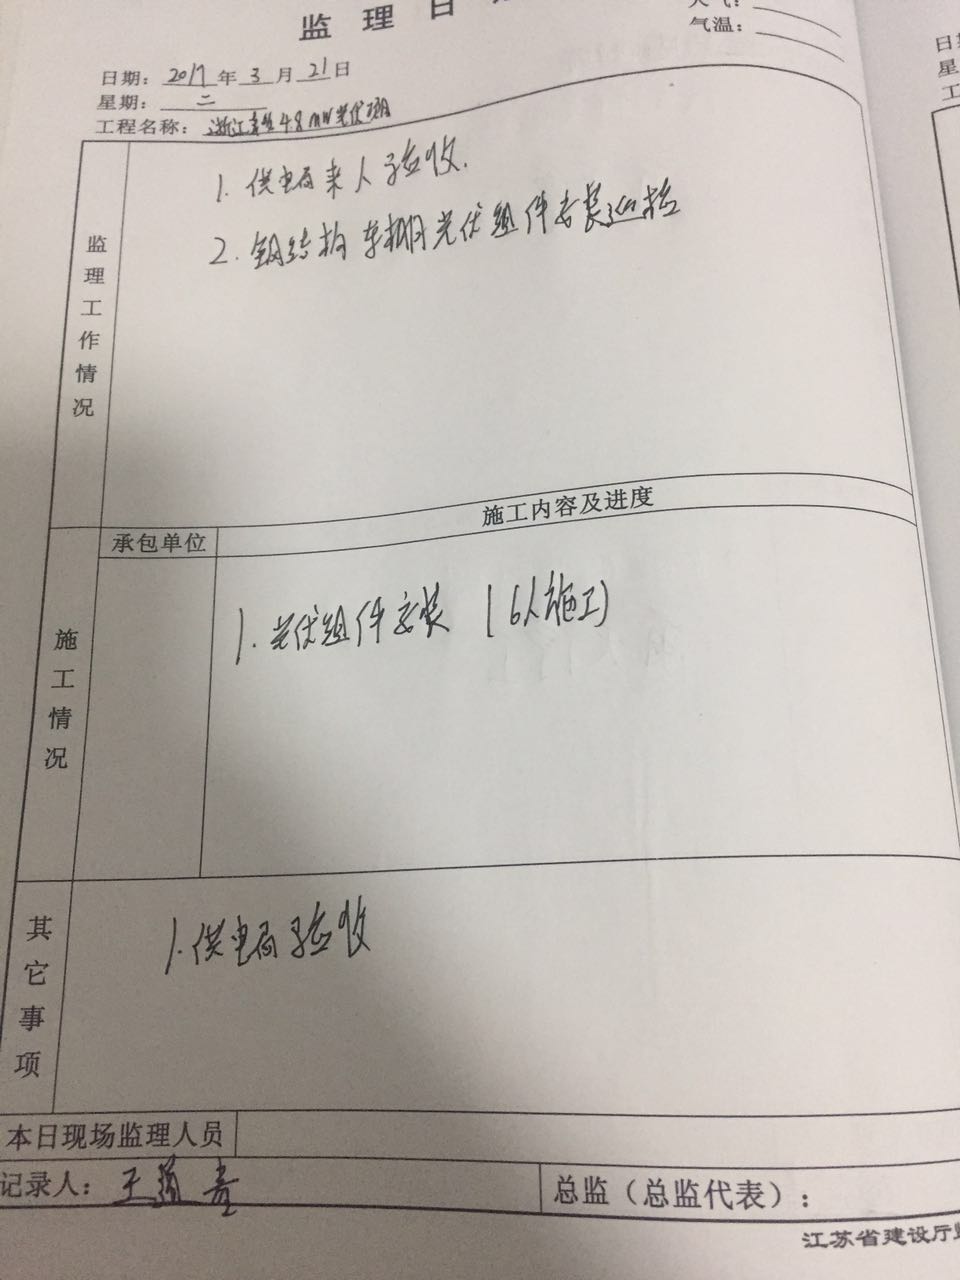 监理日
气温：
日期：2017年3月21日
星期：二
工程名称：浙江 4.8MW光伏项目
监理工作情况
1. 供电局来人验收.
2. 钢结构车棚光伏组件安装巡检
施工情况
承包单位
施工内容及进度
1. 光伏组件安装 (6人施工)
其它事项
1. 供电局验收
本日现场监理人员
记录人：王
总监（总监代表）：
江苏省建设厅